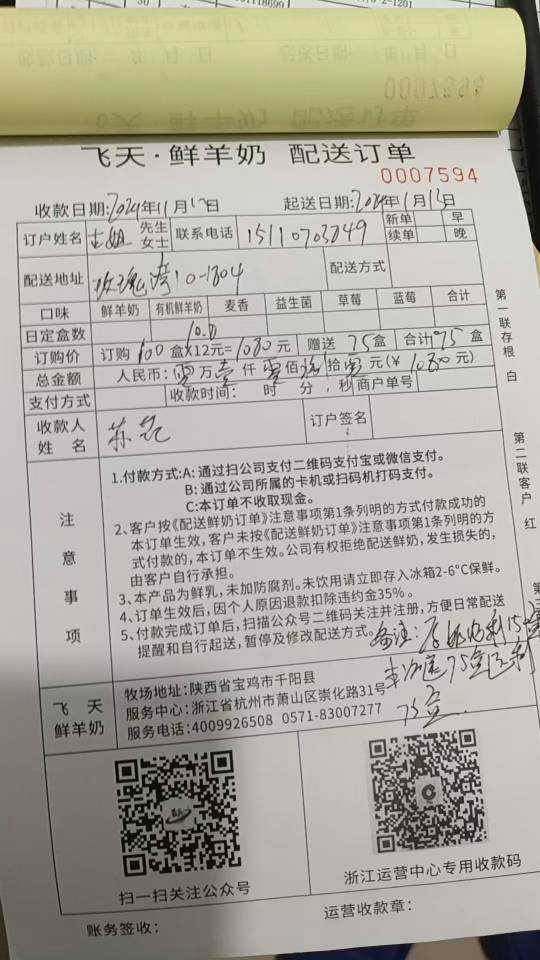 飞天·鲜羊奶 配送订单
0007594
收款日期:2024年11月17日 起送日期:2024年11月13日
订户姓名 先生 女士 联系电话 15110703849 新单 早
续单 晚
配送地址 玫瑰湾10-1804 配送方式
口味 鲜羊奶 有机鲜羊奶 麦香 益生菌 草莓 蓝莓 合计
日定盒数 10.8
订购价 订购 100 盒×12元=1080元 赠送 75盒 合计 盒
总金额 人民币: 零万壹仟零佰捌拾零元(¥1080元)
支付方式 收款时间: 时 分, 秒 商户单号
收款人 姓名 订户签名
注意事项
1.付款方式:A: 通过扫公司支付二维码支付宝或微信支付。
B: 通过公司所属的卡机或扫码机打码支付。
C:本订单不收取现金。
2、客户按《配送鲜奶订单》注意事项第1条列明的方式付款成功的
本订单生效,客户未按《配送鲜奶订单》注意事项第1条列明的方
式付款的,本订单不生效。公司有权拒绝配送鲜奶,发生损失的,
由客户自行承担。
3、本产品为鲜乳,未加防腐剂。未饮用请立即存入冰箱2-6°C保鲜。
4、订单生效后,因个人原因退款扣除违约金35%。
5、付款完成订单后,扫描公众号二维码关注并注册,方便日常配送
提醒和自行起送,暂停及修改配送方式。
备注:
75盒
75盒
飞天 鲜羊奶
牧场地址:陕西省宝鸡市千阳县
服务中心:浙江省杭州市萧山区崇化路31号
服务电话:4009926508 0571-83007277
扫一扫关注公众号
浙江运营中心专用收款码
账务签收: 运营收款章:
第一联存根 白
第二联客户 红